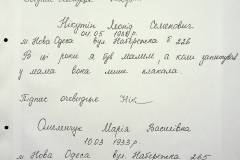 Нікутін Леонід Семенович
04.05 1928 р.
м Нова Одеса вул Набережна б 226
В ці роки я був малим, а коли запитував
у мами вона лише плакала
Підпис очевидця Нік
Омеленчук Марія Василівна
10.03 1933 р.
м Нова Одеса вул Набережна 265